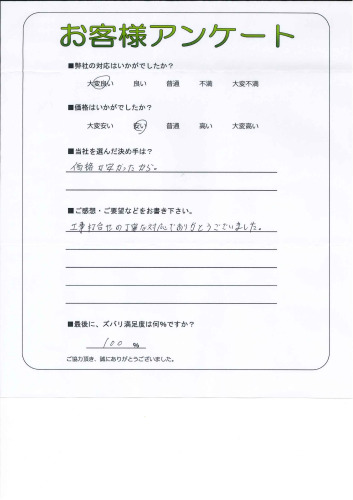 お客様アンケート
■弊社の対応はいかがでしたか？
大変良い 良い 普通 不満 大変不満
■価格はいかがでしたか？
大変安い 安い 普通 高い 大変高い
■当社を選んだ決め手は？
価格が安かったから。
■ご感想・ご要望などをお書き下さい。
工事打合せの丁寧な対応でありがとうございました。
■最後に、ズバリ満足度は何%ですか？
100 %
ご協力頂き、誠にありがとうございました。